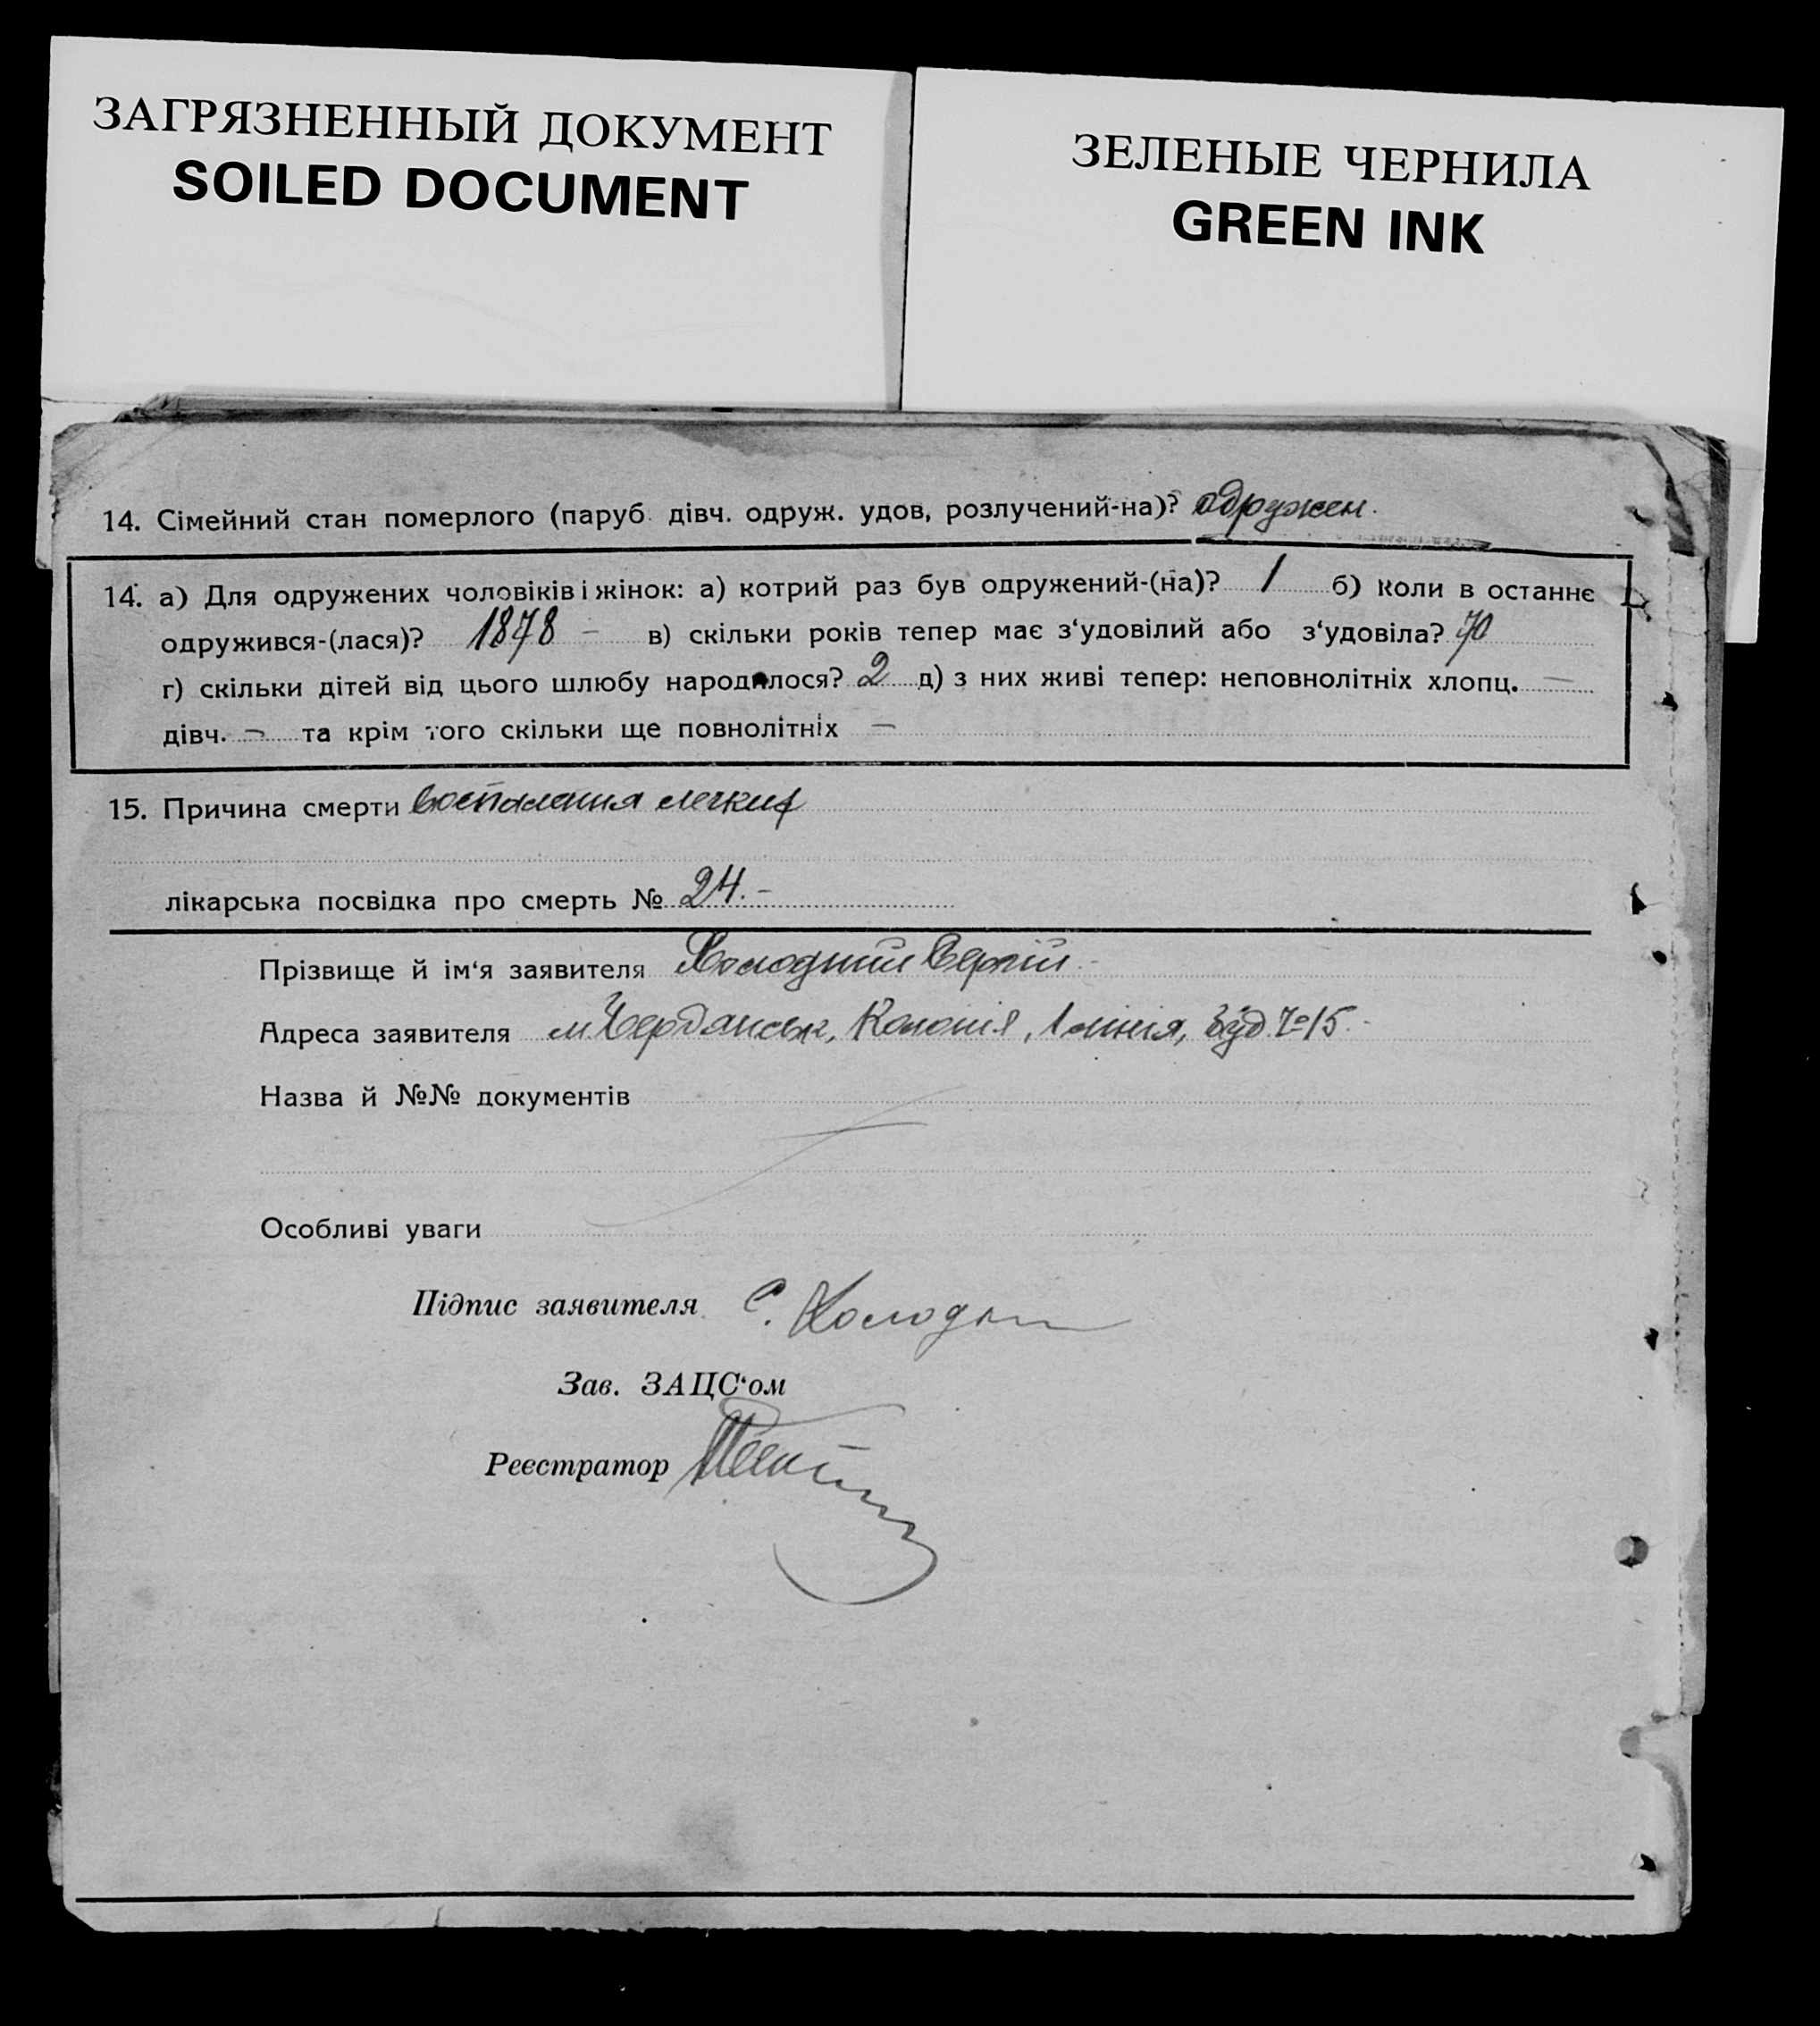 ЗАГРЯЗНЕННЫЙ ДОКУМЕНТ
SOILED DOCUMENT
ЗЕЛЕНЫЕ ЧЕРНИЛА
GREEN INK
14. Сімейний стан померлого (паруб. дівч. одруж. удов, розлучений-на)? одружен.
14. а) Для одружених чоловіків і жінок: а) котрий раз був одружений-(на)? 1 б) коли в останнє
одружився-(лася)? 1878 – в) скільки років тепер має з‘удовілий або з‘удовіла? 70
г) скільки дітей від цього шлюбу народилося? 2 д) з них живі тепер: неповнолітніх хлопц. —
дівч. – та крім того скільки ще повнолітніх —
15. Причина смерти воспаления легких
лікарська посвідка про смерть № 24. –
Прізвище й ім‘я заявителя Холодний Сергій –
Адреса заявителя м. Бердянськ, Колонія, 1 лінія, буд. № 15. –
Назва й №№ документів
Особливі уваги
Підпис заявителя С. Холодн
Зав. ЗАЦС‘ом
Реєстратор